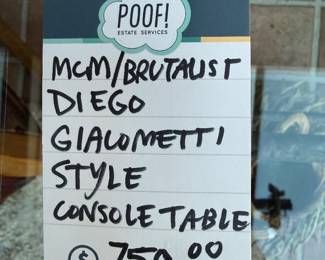 POOF!
ESTATE SERVICES
MCM/BRUTALIST
DIEGO
GIACOMETTI
STYLE
CONSOLE TABLE
$ 750.00